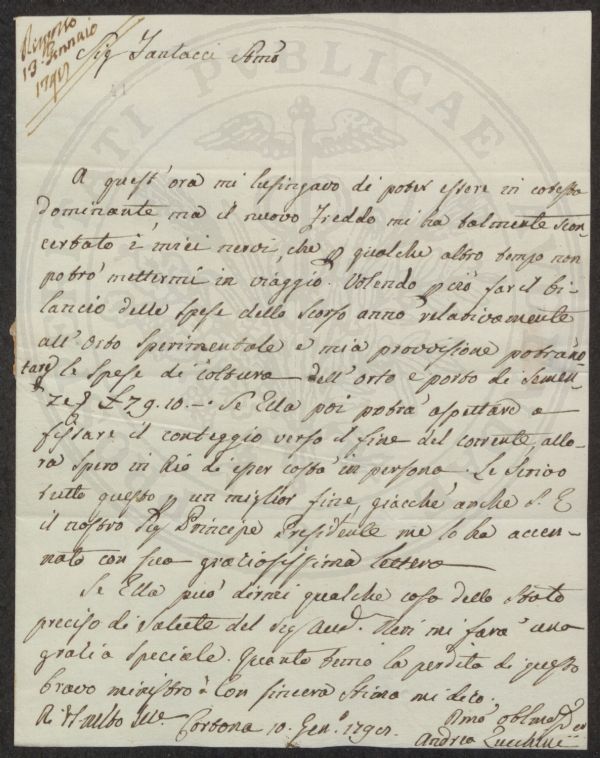 Risposto
13. Gennaio
Sig Fantacci Stmo
41
ATI PUBLICAE
A quest'ora mi lusingavo di poter essere in cotesta
dominante, ma il nuovo freddo mi ha talmente scon-
certato i miei nervi, che p qualche altro tempo non
potrò mettermi in viaggio. Volendo p ciò far il bi-
lancio delle spese dello scorso anno relativamente
all'Orto sperimentale e mia provvisione potrà no-
tare le spese di coltura dell'orto e porto di semen-
ze £ 79.10.— Se Ella poi potrà aspettare a
fissare il conteggio verso il fine del corrente, allo-
ra spero in Dio di esser costà in persona. Le scrivo
tutto questo p un miglior fine, giacchè anche S. E
il nostro Sig Principe Presidente me lo ha accen-
nato con sua graziosissima lettera
Se Ella può dirmi qualche cosa dello stato
preciso di salute del Sig Aud. Neri mi farà una
grazia speciale. Quanto temo la perdita di questo
bravo ministro! Con sincera stima mi dico.
Cortona 10. Gen.o
Andrea Zucchini